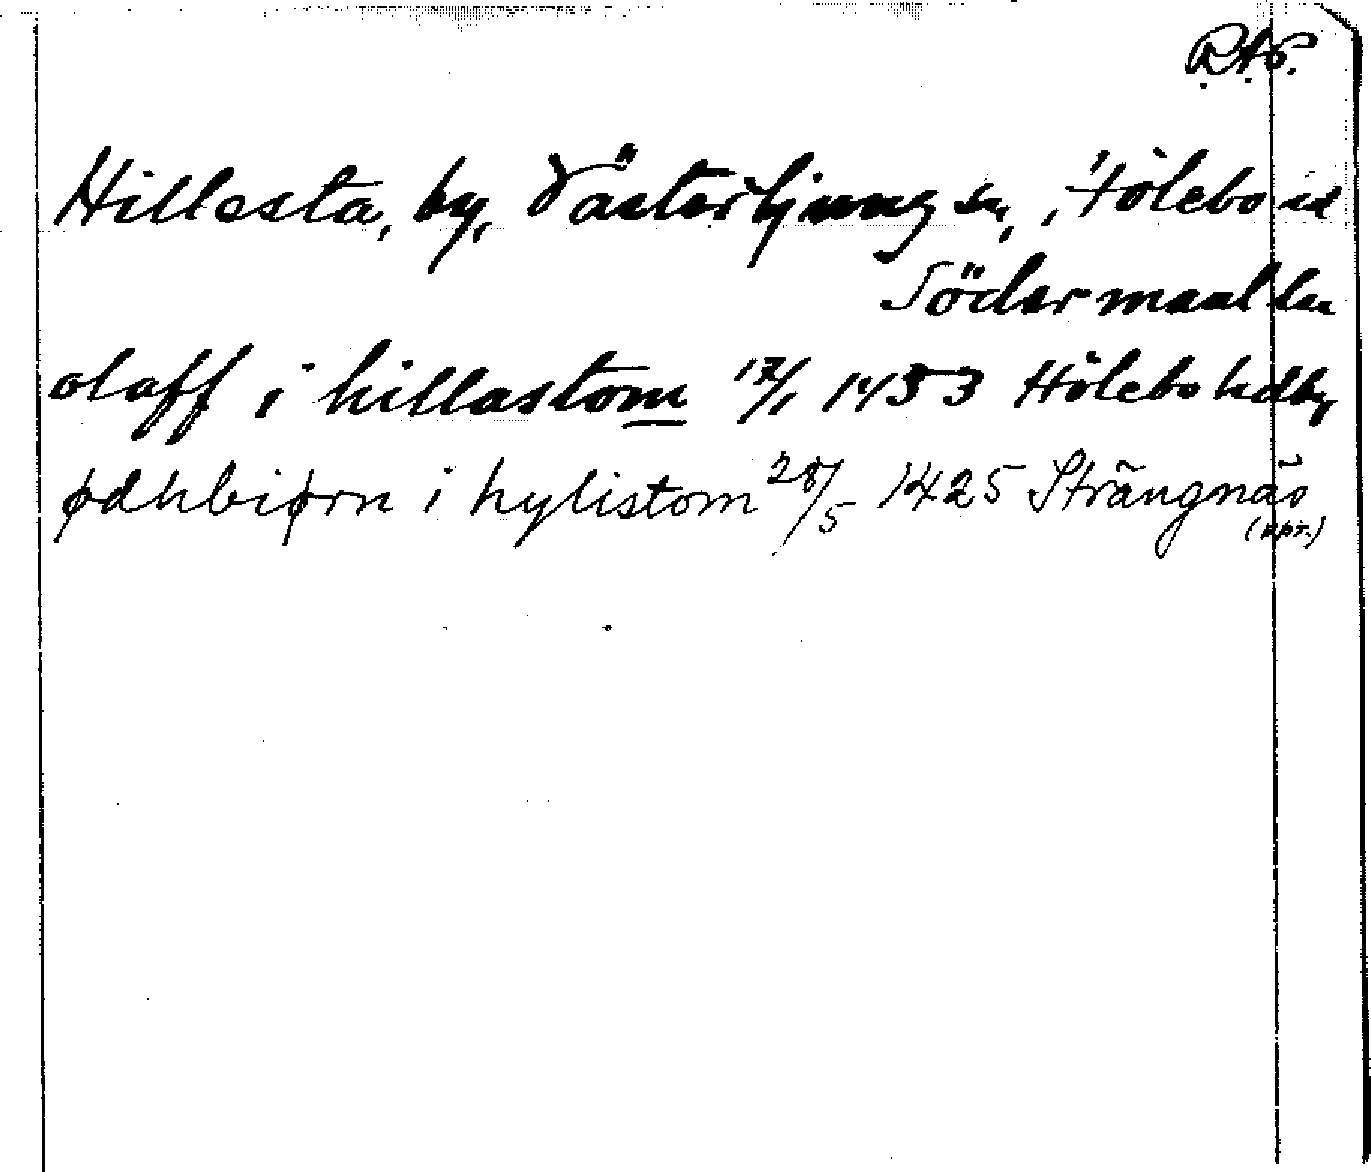 R.A.P.
Hillesta, by, Västerljung sn, Hölebo hd
Södermanl. län
olaff i hillastom 17/1 1453 Hölebo hdby
ødhbiørn i hylistom 28/5 1425 Strängnäs
(ppr.)